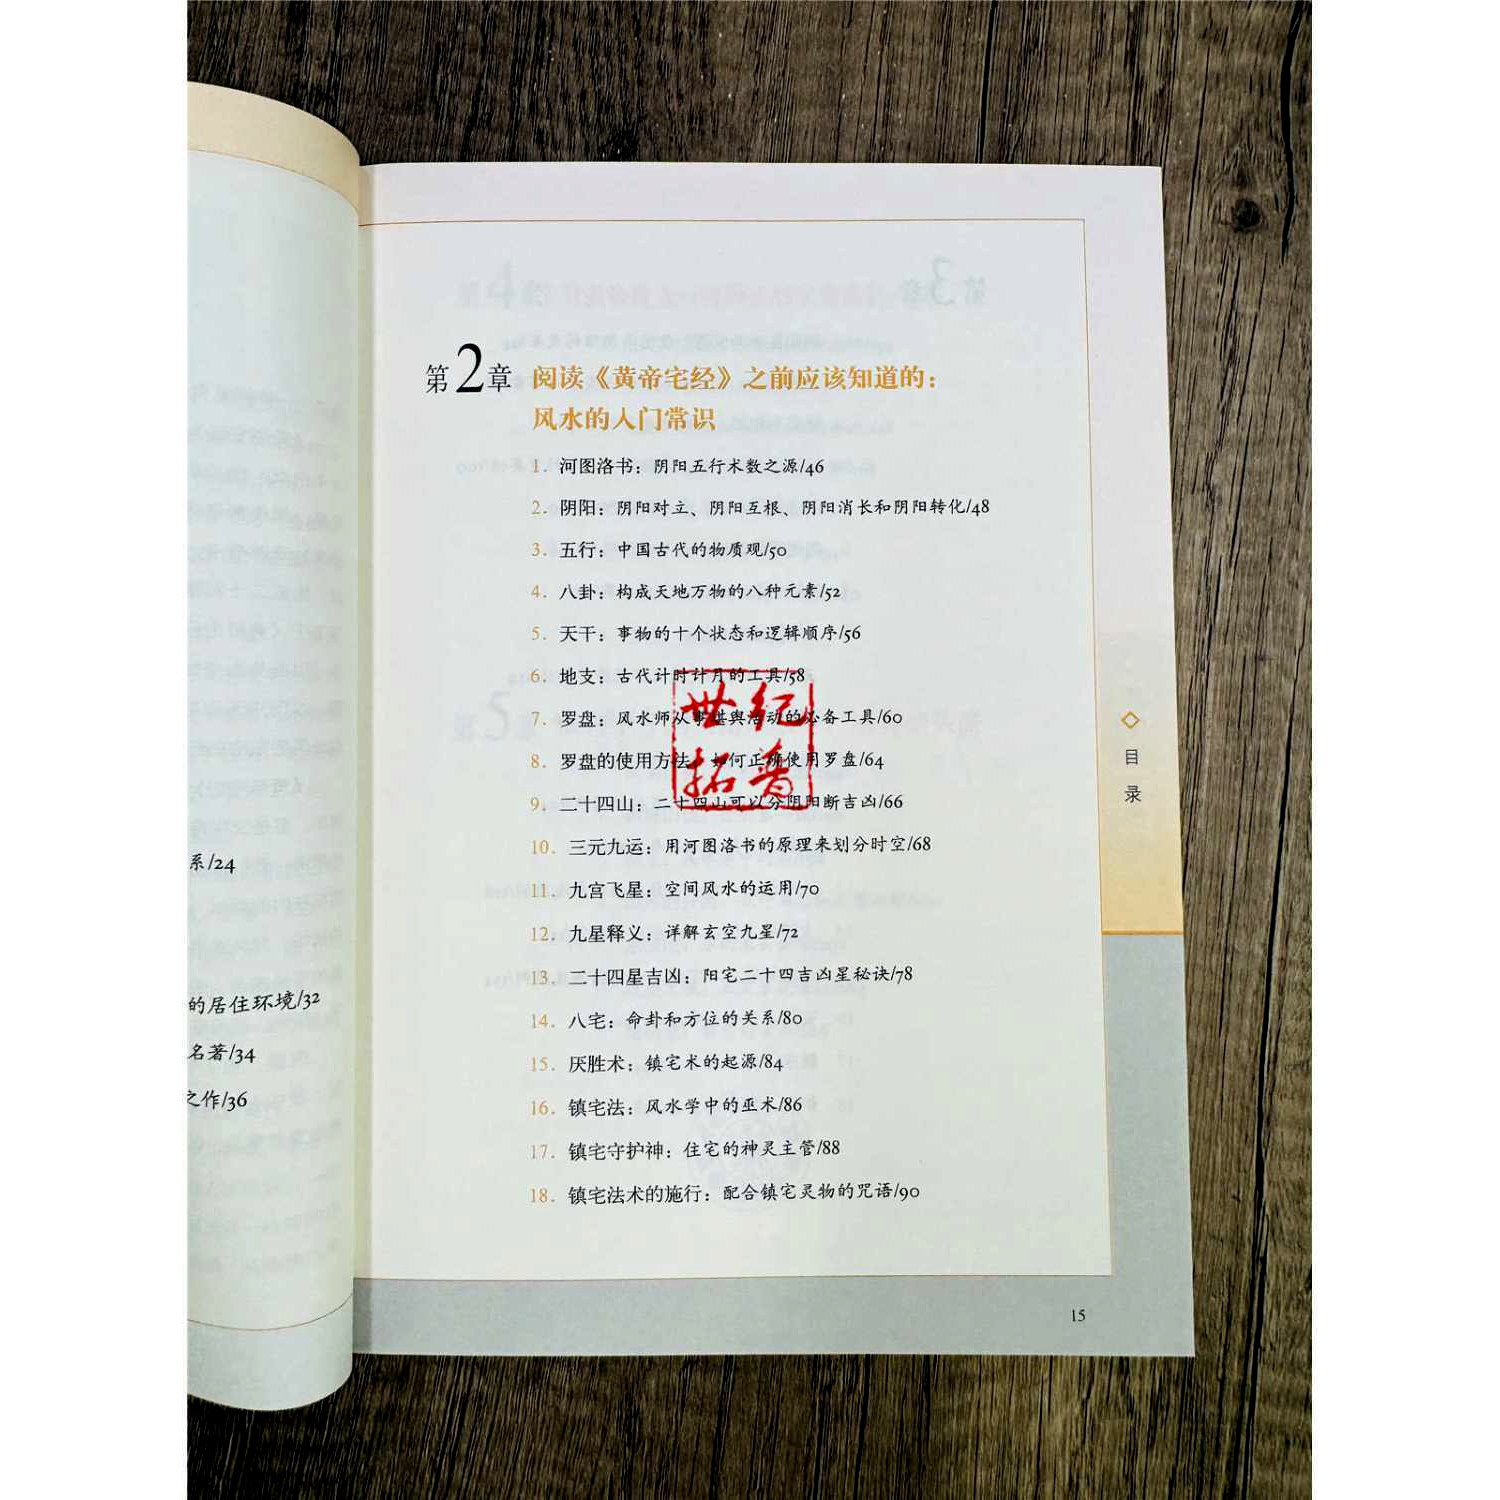 系/24
的居住环境/32
名著/34
之作/36
第2章 阅读《黄帝宅经》之前应该知道的：
风水的入门常识
1. 河图洛书：阴阳五行术数之源/46
2. 阴阳：阴阳对立、阴阳互根、阴阳消长和阴阳转化/48
3. 五行：中国古代的物质观/50
4. 八卦：构成天地万物的八种元素/52
5. 天干：事物的十个状态和逻辑顺序/56
6. 地支：古代计时计月的工具/58
7. 罗盘：风水师从事堪舆活动的必备工具/60
8. 罗盘的使用方法：如何正确使用罗盘/64
9. 二十四山：二十四山可以分阴阳断吉凶/66
10. 三元九运：用河图洛书的原理来划分时空/68
11. 九宫飞星：空间风水的运用/70
12. 九星释义：详解玄空九星/72
13. 二十四星吉凶：阳宅二十四吉凶星秘诀/78
14. 八宅：命卦和方位的关系/80
15. 厌胜术：镇宅术的起源/84
16. 镇宅法：风水学中的巫术/86
17. 镇宅守护神：住宅的神灵主管/88
18. 镇宅法术的施行：配合镇宅灵物的咒语/90
世纪
拓普
目录
15